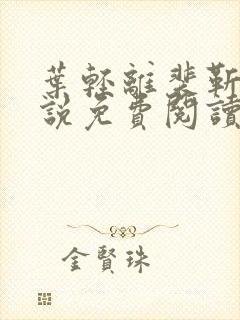 葉輕離裴靳
說免費閱讀
金賢珠